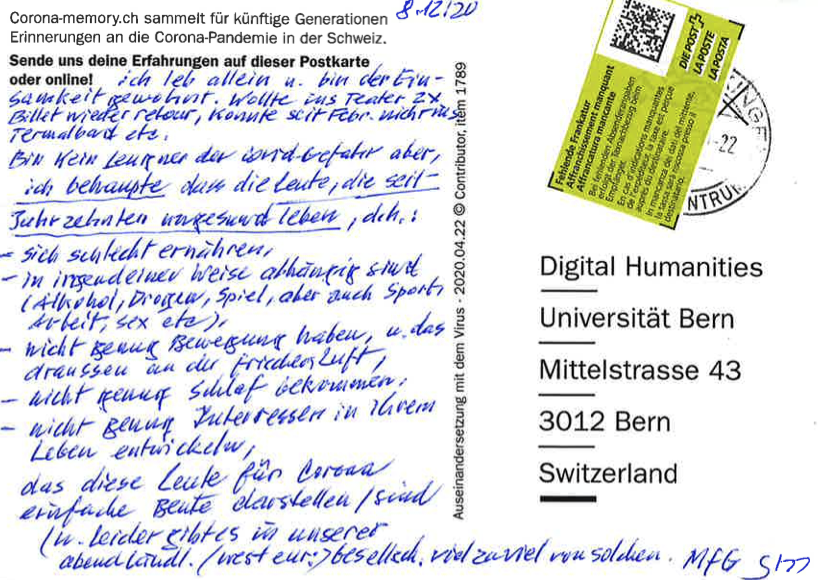 Corona-memory.ch sammelt für künftige Generationen
8.12/20
Erinnerungen an die Corona-Pandemie in der Schweiz.
Sende uns deine Erfahrungen auf dieser Postkarte
oder online!
ich leb allein u. bin der Ein-
samkeit gewohnt. Wollte ins Teater 2x
Billet wieder retour, konnte seit Febr. nicht ins
Termalbad etc.
Bin kein Leugner der Covid-Gefahr aber,
ich behaupte dass die Leute, die seit
Jahrzehnten ungesund leben, d.h.:
- sich schlecht ernähren,
- in irgendeiner Weise abhängig sind
(Alkohol, Drogen, Spiel, aber auch Sport,
Arbeit, sex etc),
- nicht genug Bewegung haben, u. das
draussen an der frischen Luft,
- nicht genug Schlaf bekommen,
- nicht genug Interessen in ihrem
Leben entwickeln,
das diese Leute für Corona
einfache Beute darstellen / sind
(u. leider gibt es in unserer
abendländl. (west eur.) Gesellsch. viel zu viel von solchen. MfG
Auseinandersetzung mit dem Virus - 2020.04.22 © Contributor, item 1789
DIE POST
LA POSTE
LA POSTA
Fehlende Frankatur
Affranchissement manquant
Affrancatura mancante
Bei fehlenden Absenderangaben
erfolgt der Taxnachbezug beim
Empfänger.
En cas d'indications manquantes
de l'expéditeur, la taxe est perçue
auprès du destinataire.
In mancanza dei dati del mittente,
la tassa sarà riscossa presso il
destinatario.
-22
NTRUM
Digital Humanities
Universität Bern
Mittelstrasse 43
3012 Bern
Switzerland